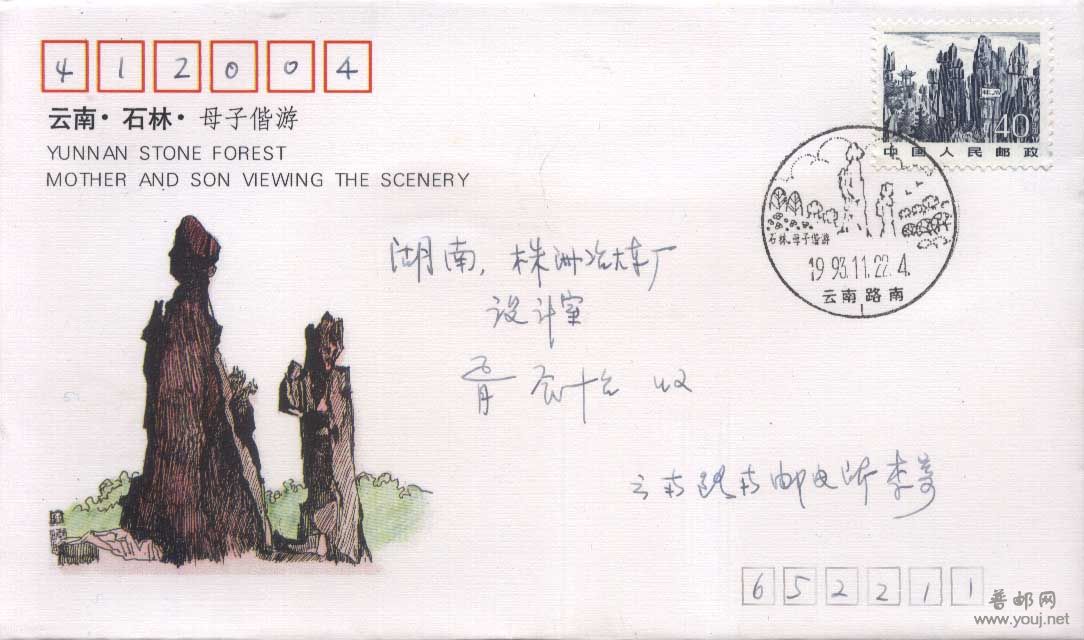 412004
云南·石林·母子偕游
YUNNAN STONE FOREST
MOTHER AND SON VIEWING THE SCENERY
40
中国人民邮政
石林·母子偕游
1993.11.22.4.
云南路南
湖南，株洲冶炼厂
设计室
收
云南路南邮电所李
652211
普邮网
www.youj.net